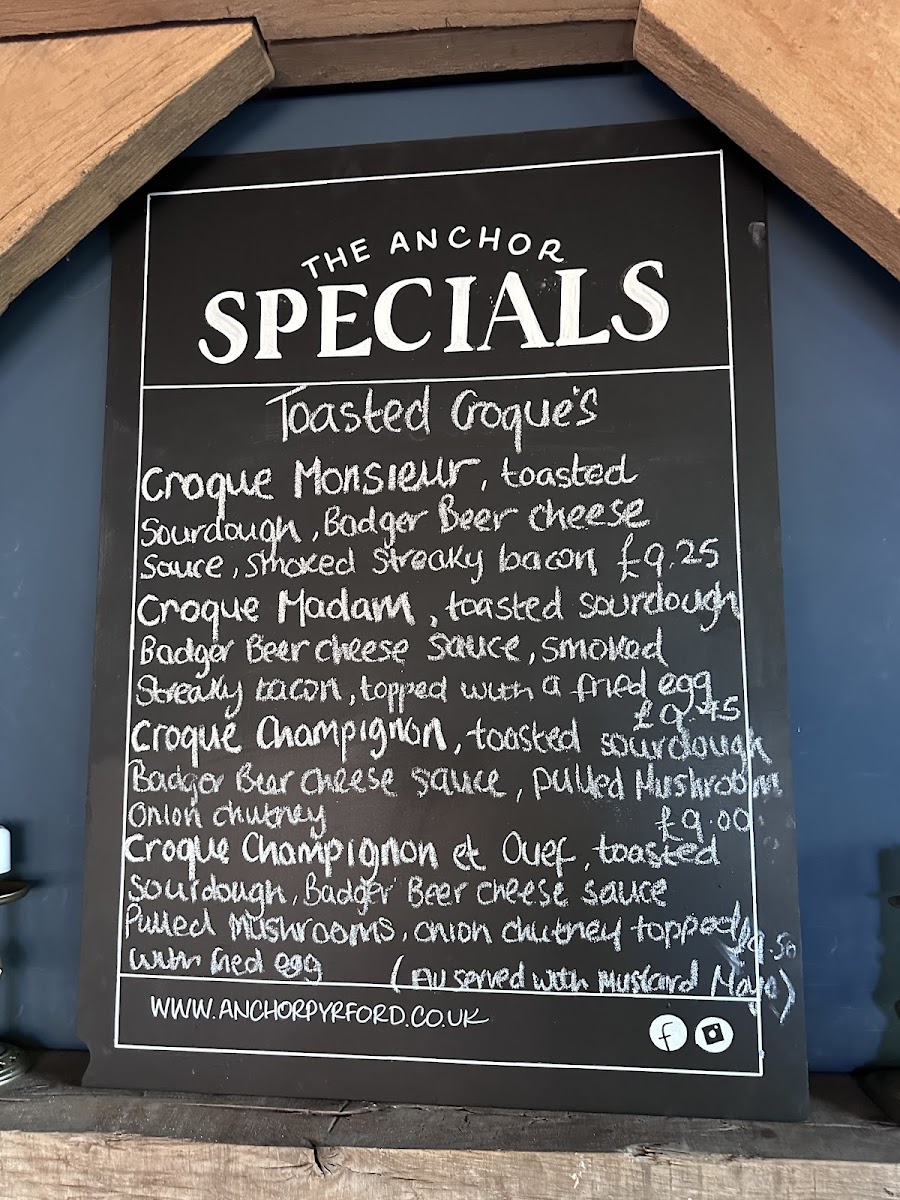 THE ANCHOR
SPECIALS
Toasted Croque's
Croque Monsieur, toasted
Sourdough, Badger Beer cheese
Sauce, smoked streaky bacon £9.25
Croque Madam, toasted sourdough
Badger Beer cheese sauce, smoked
Streaky bacon, topped with a fried egg
£9.75
Croque Champignon, toasted sourdough
Badger Beer cheese sauce, pulled Mushroom
Onion chutney £9.00
Croque Champignon et Ouef, toasted
Sourdough, Badger Beer cheese sauce
Pulled Mushrooms, onion chutney topped £9.50
with fried egg (All served with Mustard Mayo)
WWW.ANCHORPYRFORD.CO.UK
f